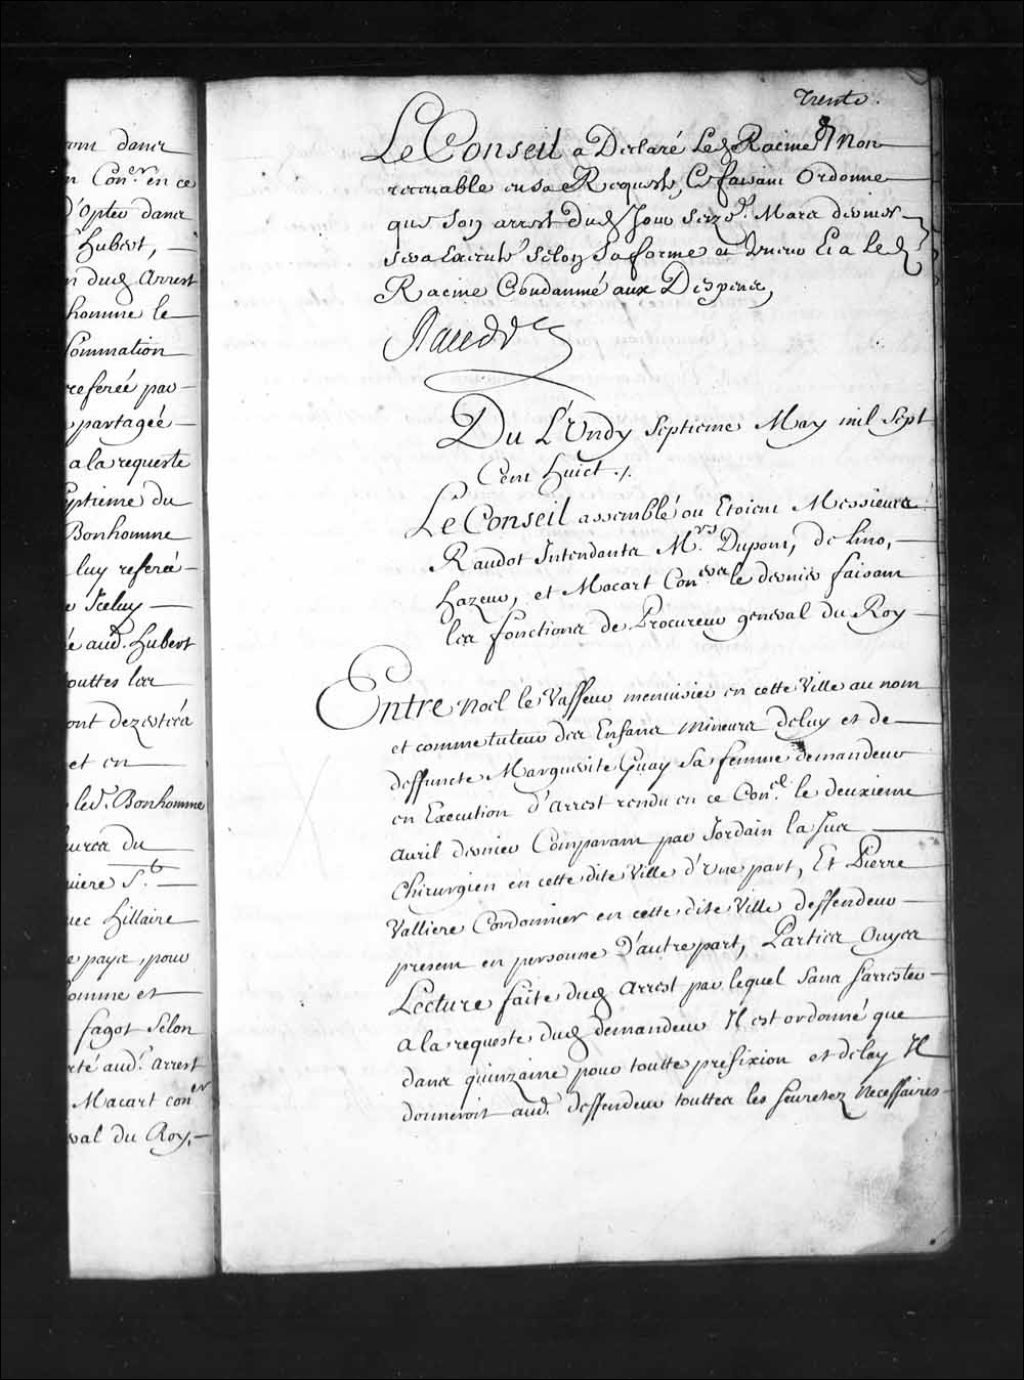 om dans
n Con.er en ce
d'opter dans
hubert,
n dud. Arrest
homme le
Sommation
referée par
partagée
a la requeste
eptieme du
Bonhomme
luy referé
e Iceluy
é aud. hubert
outtes les
ont dezertera
et en
led. Bonhomme
eures du
niere St.
uec hillaire
e paye, pour
omme et
fagot Selon
rté aud. arrest
Macart con.er
ral du Roy,
Trente.
Le Conseil a Declaré Led. Racine Non
receuable en sa Requeste, Ce faisant Ordonne
que son arrest dud. Jour seize. Mars dernier
sera Executé selon Sa forme et teneur Et a Led.
Racine Condamné aux Despens,
Raudot
Du L'Undy Septieme May mil Sept
Cent huict ./.
Le Conseil assemblé ou Etoient Messieurs
Raudot Intendants M.rs Dupont, de Lino,
hazeur, et Macart Con.ers le dernier faisant
les fonctions de Procureur general du Roy
Entre Noel le Vasseur menuisier en cette Ville au nom
et comme tuteur des Enfans mineurs de luy et de
deffuncte Marguerite Guay Sa femme demandeur
en Execution d'arrest rendu en ce Con.el le deuxieme
auril dernier Comparant par Jordain la Jus
Chirurgien en cette dite Ville d'Une part, Et Pierre
Valliere Cordonnier en cette dite Ville deffendeur
present en personne D'autre part, Parties Ouyes
Lecture faite dud. arrest par lequel Sans s'arrester
a la requeste dud. demandeur Il est ordonné que
dans quinzaine pour toutte prefixion et delay Il
donneroit aud. deffendeur touttes les seuretez Necessaires